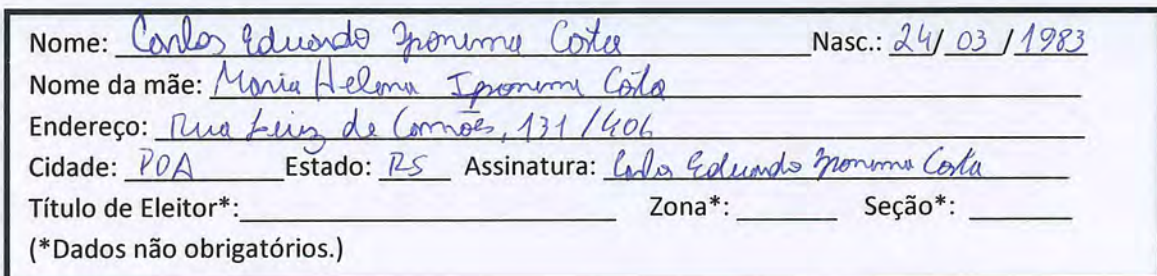 Nome: Carlos Eduardo Iponema Costa Nasc.: 24/ 03 / 1983
Nome da mãe: Maria Helena Iponema Costa
Endereço: Rua Luiz de Camões, 131 / 406
Cidade: POA Estado: RS Assinatura: Carlos Eduardo Iponema Costa
Título de Eleitor*: Zona*: Seção*:
(*Dados não obrigatórios.)